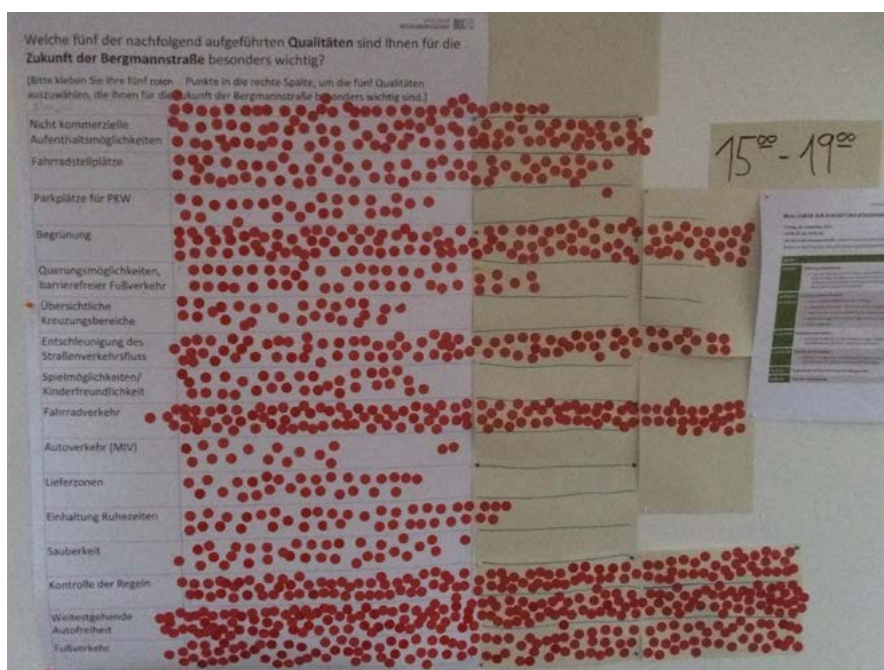 Welche fünf der nachfolgend aufgeführten Qualitäten sind Ihnen für die
Zukunft der Bergmannstraße besonders wichtig?
(Bitte kleben Sie Ihre fünf roten Punkte in die rechte Spalte, um die fünf Qualitäten
auszuwählen, die Ihnen für die Zukunft der Bergmannstraße besonders wichtig sind.)
Nicht kommerzielle
Aufenthaltsmöglichkeiten
Fahrradstellplätze
Parkplätze für PKW
Begrünung
Querungsmöglichkeiten,
barrierefreier Fußverkehr
Übersichtliche
Kreuzungsbereiche
Entschleunigung des
Straßenverkehrsfluss
Spielmöglichkeiten/
Kinderfreundlichkeit
Fahrradverkehr
Autoverkehr (MIV)
Lieferzonen
Einhaltung Ruhezeiten
Sauberkeit
Kontrolle der Regeln
Weitestgehende
Autofreiheit
Fußverkehr
15⁰⁰ - 19⁰⁰